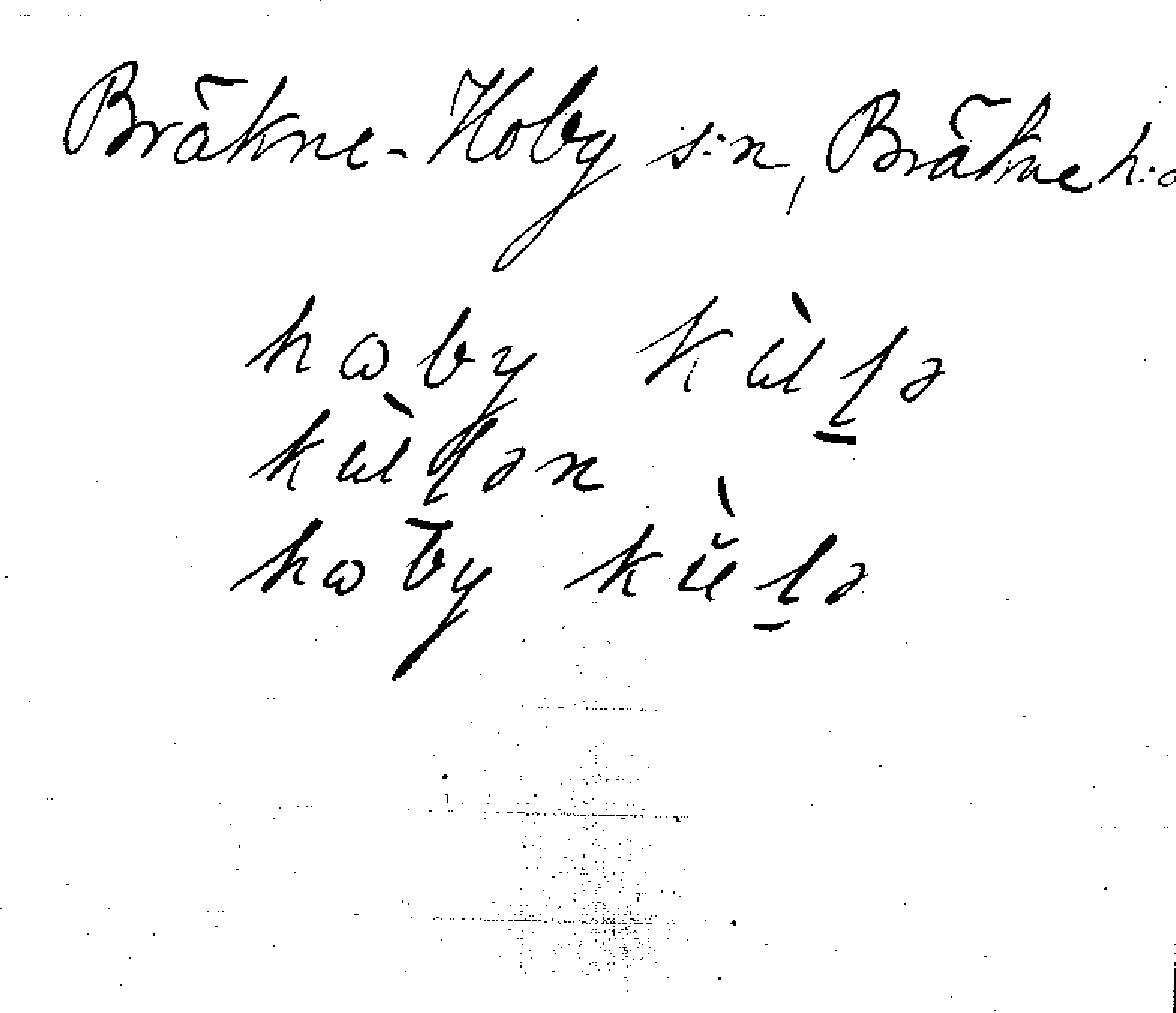 Bräkne-Hoby s:n, Bräkne h:d
hωby kùɭə
kùɭən
hωby kŭ̀ɭə